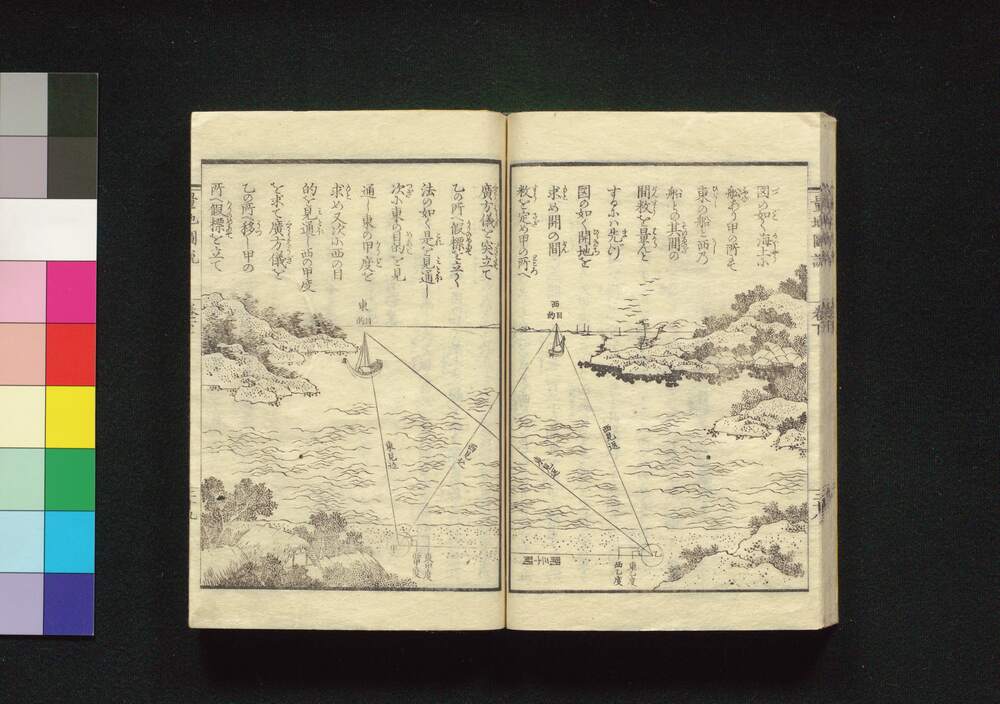 図の如く海上に
船あり甲の所より
東の船と西乃
船との其間の
間数を量んと
するにハ先づ
図の如く開地を
求め開の間
数を定め甲の所へ
廣方儀を突立て
乙の所へ假標を立く
法の如く是を見通し
次に東の目的を見
通し東の甲度を
求め又次に西の目
的を見通し西の甲度
を求て廣方儀を
乙の所へ移し甲の
所へ假標を立て
西
目的
東
目的
西見通
東見通
東見通
西見通
開三十間
東乙度
西乙度
甲
乙
東甲度
西甲度
量地圖説
巻下